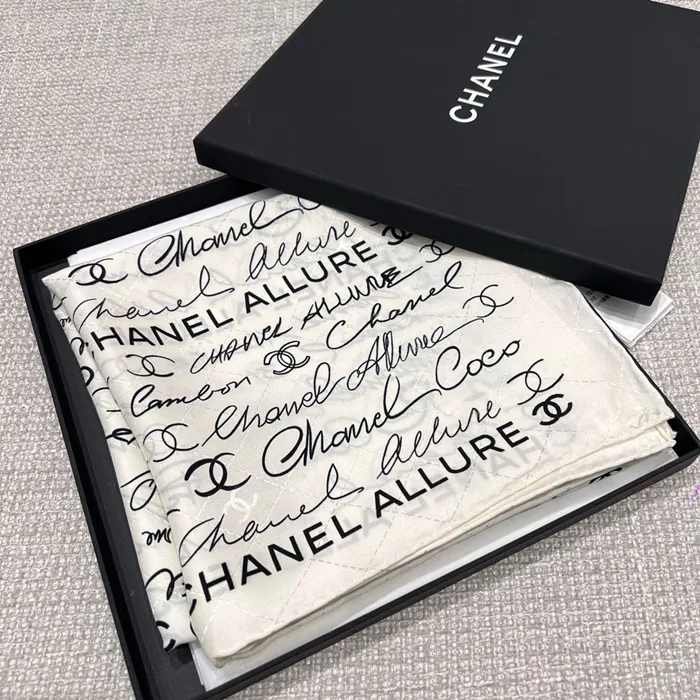 CHANEL
Chanel
Chanel Allure
HANEL ALLURE
CHANEL ALLURE
Cambon Chanel
Chanel Allure
Chanel Coco
Chanel Allure
CHANEL ALLURE